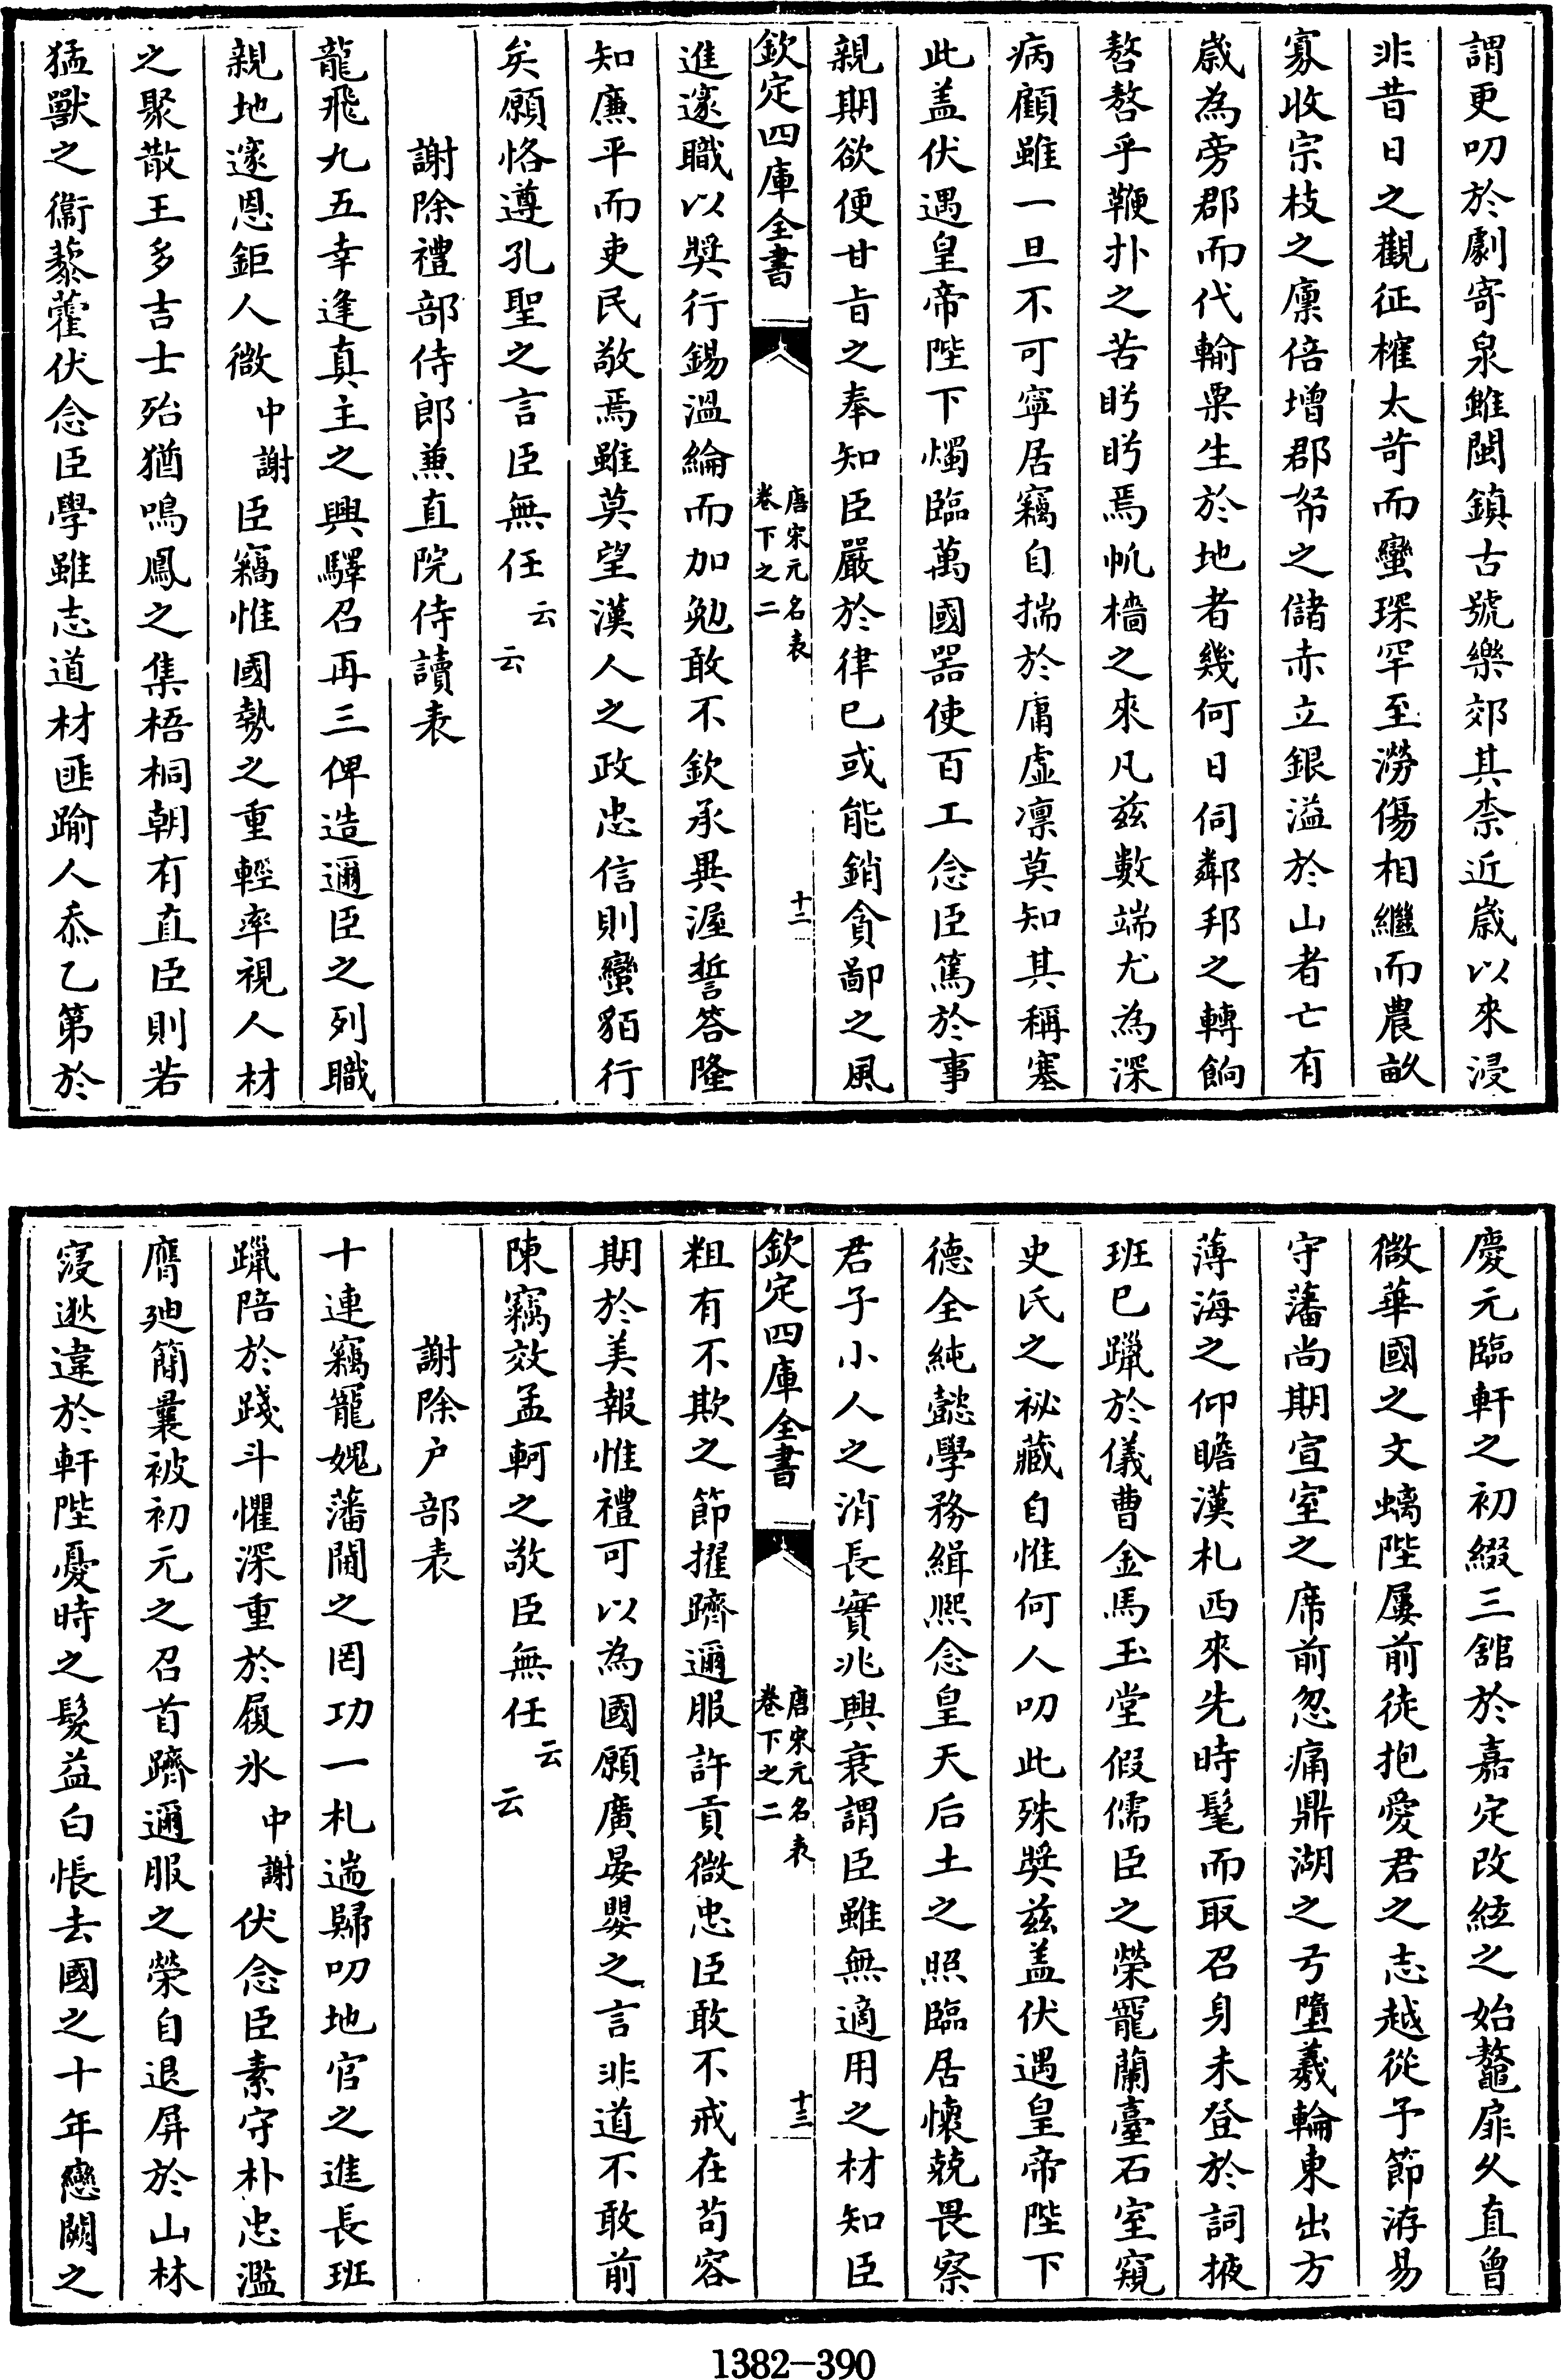 謂更叨於劇寄泉雖閩鎮古號樂郊其柰近嵗以來浸
非昔日之觀征榷太苛而蠻琛罕至澇傷相繼而農畝
寡收宗枝之廩倍增郡帑之儲赤立銀溢於山者亡有
嵗為旁郡而代輸粟生於地者幾何日伺鄰邦之轉餉
嗸嗸乎鞭扑之苦盻盻焉帆檣之來凡兹數端尤為深
病顧雖一旦不可寧居竊自揣於庸虛凛莫知其稱塞
此盖伏遇皇帝陛下燭臨萬國器使百工念臣篤於事
親期欲便甘旨之奉知臣嚴於律已或能銷貪鄙之風
欽定四庫全書
唐宋元名表
卷下之二
十二
進邃職以奬行錫溫綸而加勉敢不欽承異渥誓答隆
知廉平而吏民敬焉雖莫望漢人之政忠信則蠻貊行
矣願恪遵孔聖之言臣無任云云
謝除禮部侍郎兼直院侍讀表
龍飛九五幸逢真主之興驛召再三俾造邇臣之列職
親地邃恩鉅人微中謝臣竊惟國勢之重輕率視人材
之聚散王多吉士殆猶鳴鳳之集梧桐朝有直臣則若
猛獸之衞藜藿伏念臣學雖志道材匪踰人忝乙第於
慶元臨軒之初綴三舘於嘉定改絃之始鼇扉久直曾
微華國之文螭陛屢前徒抱愛君之志越從予節洊易
守藩尚期宣室之席前忽痛鼎湖之弓墮羲輪東出方
薄海之仰瞻漢札西來先時髦而取召身未登於詞掖
班已躐於儀曹金馬玉堂假儒臣之榮寵蘭臺石室窺
史氏之祕藏自惟何人叨此殊奬兹盖伏遇皇帝陛下
德全純懿學務緝熙念皇天后土之照臨居懷兢畏察
君子小人之消長實兆興衰謂臣雖無適用之材知臣
欽定四庫全書
唐宋元名表
卷下之二
十三
粗有不欺之節擢躋邇服許貢微忠臣敢不戒在苟容
期於美報惟禮可以為國願廣晏嬰之言非道不敢前
陳竊效孟軻之敬臣無任云云
謝除户部表
十連竊寵媿藩閫之罔功一札遄歸叨地官之進長班
躐陪於踐斗懼深重於履氷中謝伏念臣素守朴忠濫
膺廸簡曩被初元之召首躋邇服之榮自退屏於山林
寖逖違於軒陛憂時之髮益白悵去國之十年戀闕之
1382-390